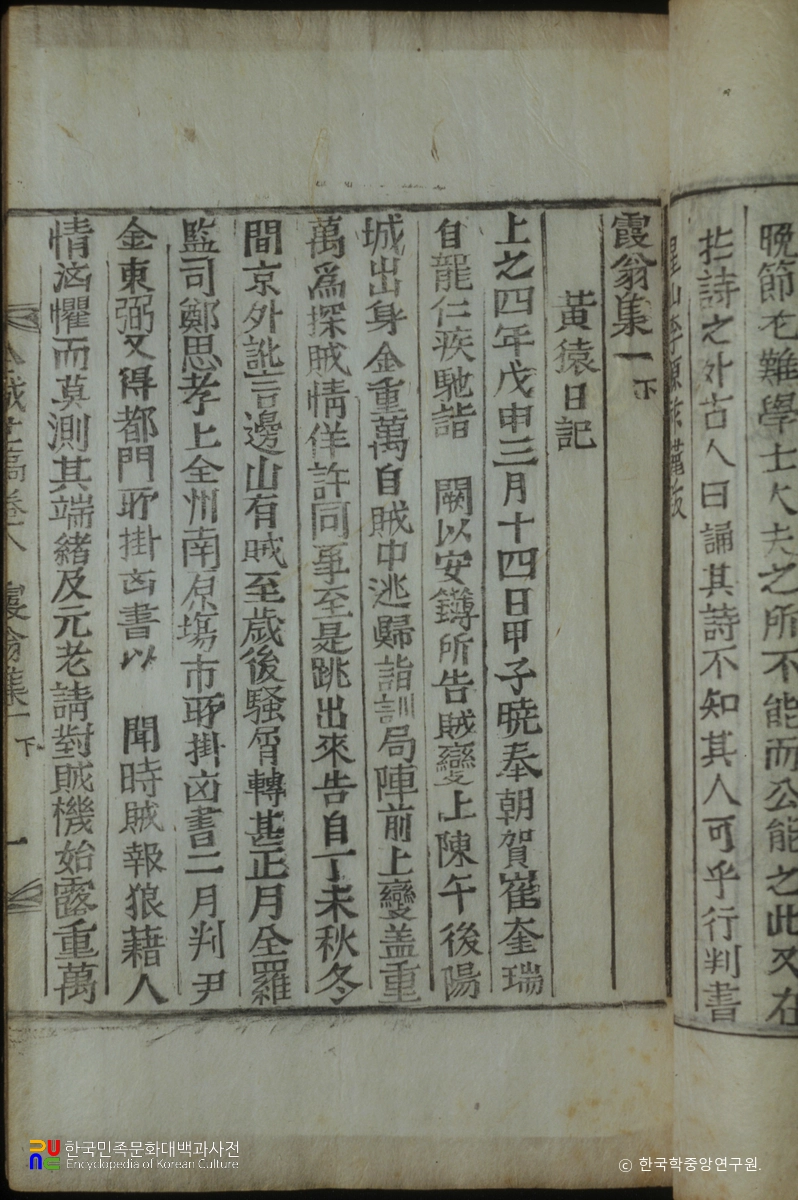 晩節尤難學士大夫之所不能而公能之此又在
於詩之外古人曰誦其詩不知其人可乎行判書
霞翁集一下
黃猿日記
上之四年戊申三月十四日甲子曉奉朝賀崔奎瑞
自龍仁疾馳詣 闕以安鑄所告賊變上陳午後陽
城出身金重萬自賊中逃歸詣訓局陣前上變盖重
萬爲探賊情佯許同事至是跳出來告自丁未秋冬
間京外訛言邊山有賊至歲後騷屑轉甚正月全羅
監司鄭思孝上全州南原塲市所掛凶書二月判尹
金東弼又得都門所掛凶書以 聞時賊報狼藉人
情汹懼而莫測其端緖及元老請對賊機始露重萬
世稿卷八 霞翁集一 下 一
한국민족문화대백과사전
Encyclopedia of Korean Culture
© 한국학중앙연구원.